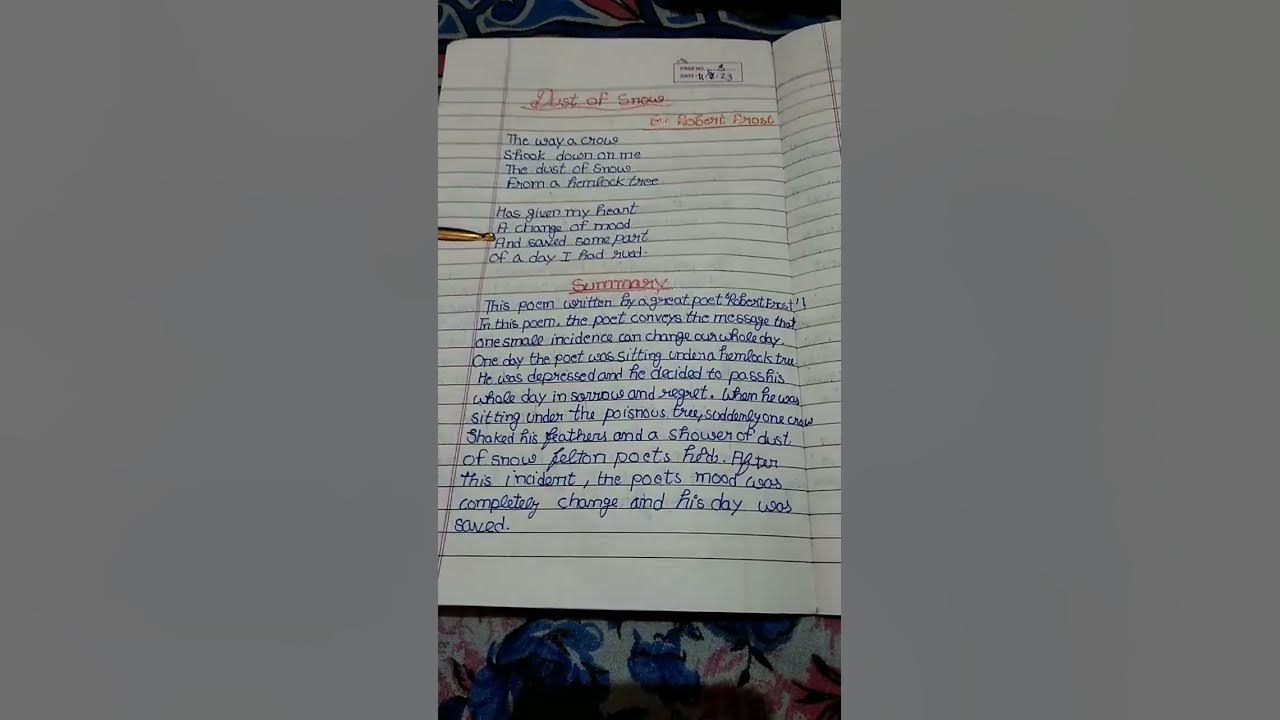 PAGE NO.
DATE
Dust of Snow
By Robert Frost
The way a crow
Shook down on me
The dust of Snow
From a hemlock tree
Has given my heart
A change of mood
And saved some part
Of a day I had rued.
Summary
This poem written by a great poet "Robert Frost"!
In this poem, the poet conveys the message that
one small incidence can change our whole day.
One day the poet was sitting under a hemlock tree
He was depressed and he decided to pass his
whole day in sorrow and regret. When he was
sitting under the poisnous tree, suddenly one crow
Shaked his feathers and a shower of dust
of snow fell on poets head. After
this incident, the poets mood was
completely change and his day was
saved.